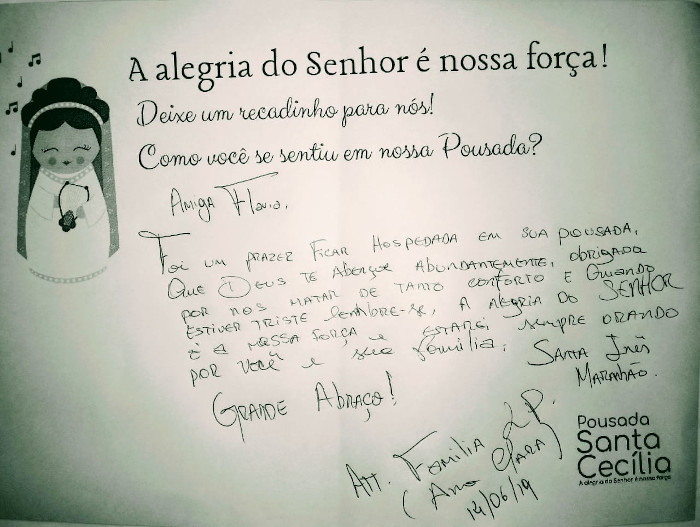 A alegria do Senhor é nossa força!
Deixe um recadinho para nós!
Como você se sentiu em nossa Pousada?
Amiga Flavia,
Foi um prazer ficar hospedada em sua pousada,
Que Deus te abençoe abundantemente, obrigada
por nos matar de tanto conforto e quando
estiver triste lembre-se, a alegria do SENHOR
é a nossa força e estarei sempre orando
por você e sua família, Santa Inês
Maranhão.
Grande Abraço!
Att. Família L.P.
(Ana Clara)
14/06/19
Pousada
Santa
Cecília
A alegria do Senhor é nossa força